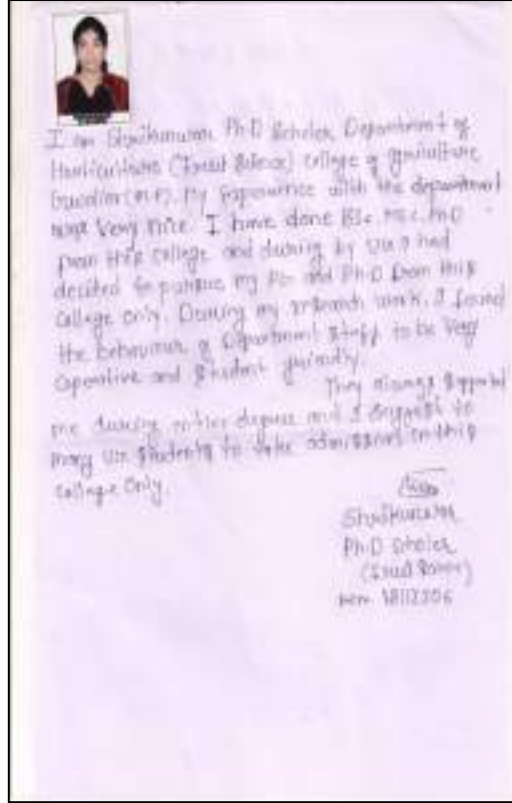 I am Ph.D Scholar, Department of
Horticulture (Fruit Science) College of
Gwalior (M.P). My experience with the department
was Very nice. I have done BSc. MSc. PhD
from this college and during my UG I had
decided to pursue my PG and Ph.D from this
College only. During my research work, I found
the behaviour of Department Staff to be Very
and Student friendly.
They always
me during entire degree and I suggest to
many UG Students to take admission in this
College Only.
Ph.D Scholar
(Fruit Science)